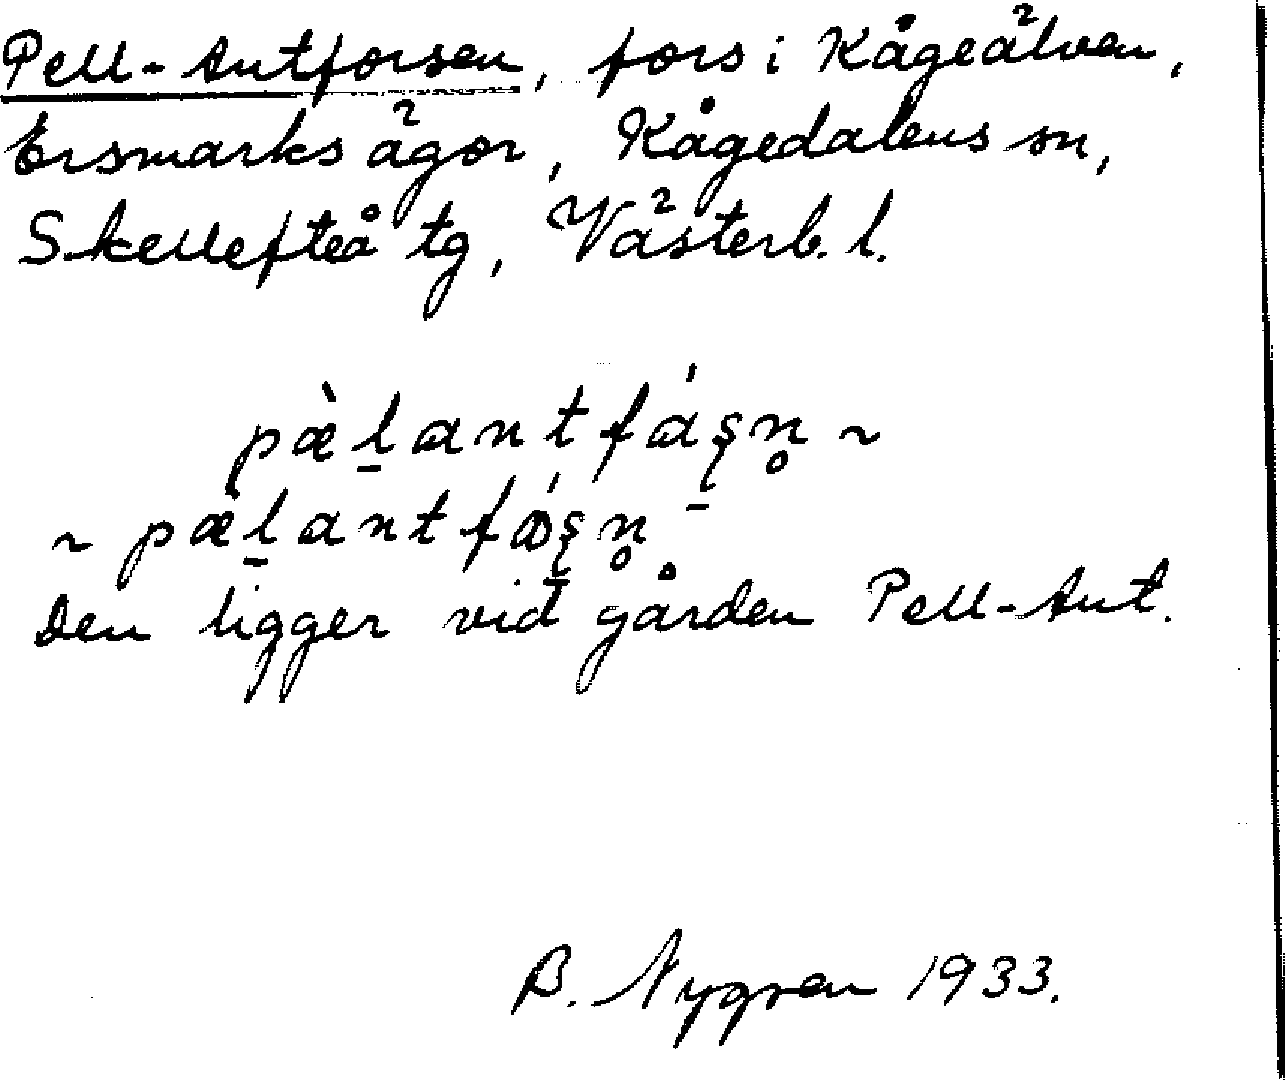 Pell-Antforsen, fors i Kågeälven,
Ersmarks ägor, Kågedalens sn,
Skellefteå tg, Västerb. l.
pæ̀l̠antfáşn̥ ~
~ pæ̀l̠antfǿşn̥
Den ligger vid gården Pell-Ant.
B. Nygren 1933.